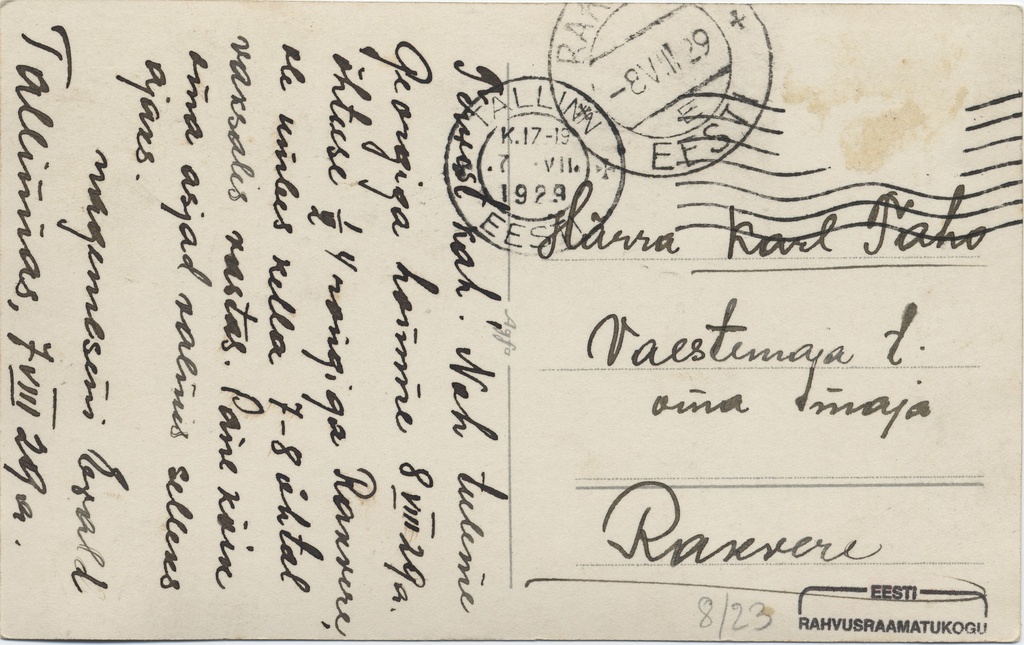 Tervist kah! Nah tuleme
Georgiga homme 8 VIII 29a.
õhtuse ½ 4 rongiga Rakvere,
ole umbes kella 7-8 õhtal
vaksalis vastas. Pane kõik
oma asjad valmis selleks
ajaks.
nägemiseni Evald
Tallinnas, 7 VIII 29a.
TALLINN
K.17-19
7 VII.
1929
EESTI
RAK
-8 VIII 29
EESTI
Härra Karl Taho
Vaestemaja t.
oma maja
Rakvere
Agfa
8/23
EESTI
RAHVUSRAAMATUKOGU